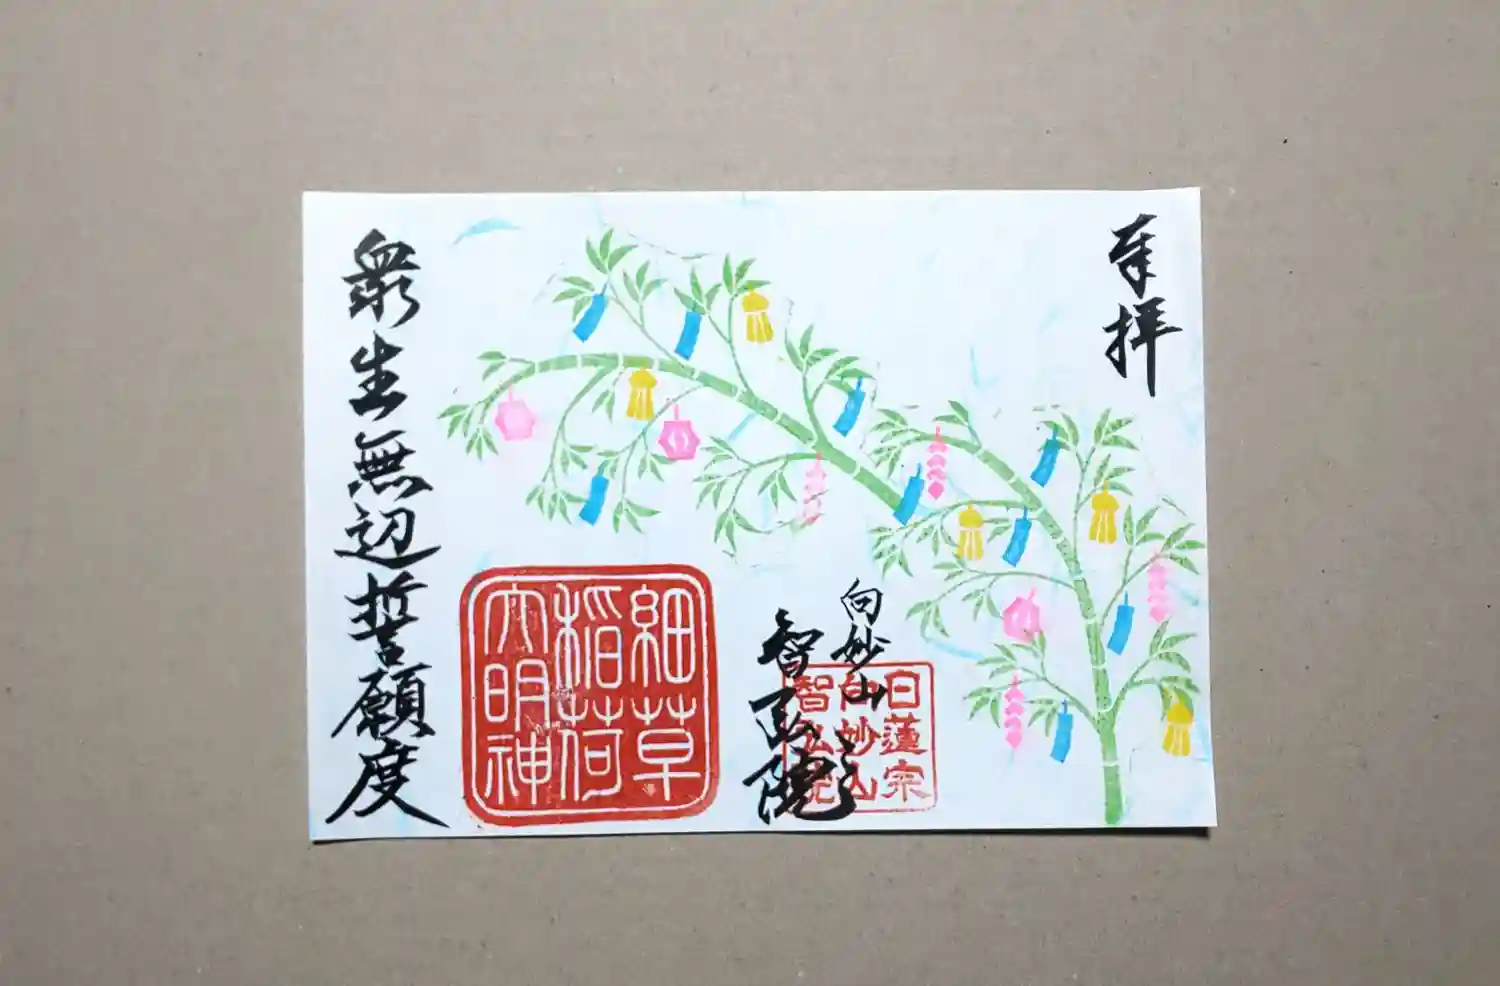 奉拝
向妙山
智弘院
白蓮宗
向妙山
智弘院
細草
稲荷
大明神
衆生無辺誓願度